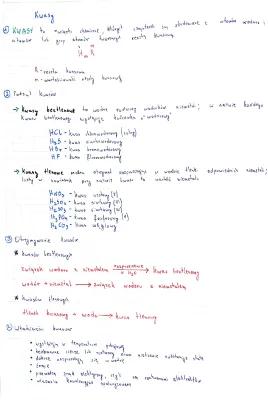 Kwasy
① KWASY to związki chemiczne, których cząsteczki są zbudowane z atomów wodoru i
atomów lub grup atomów tworzących resztę kwasową
HₘR
R - reszta kwasowa
m - wartościowość reszty kwasowej
② Podział kwasów
→ kwasy beztlenowe to wodne roztwory wodorków niemetali, w nazwie każdego
kwasu beztlenowego występuje końcówka "wodorowy"
HCl - kwas chlorowodorowy (solny)
H₂S - kwas siarkowodorowy
HBr - kwas bromowodorowy
HF - kwas fluorowodorowy
→ kwasy tlenowe można otrzymać rozpuszczając w wodzie tlenki odpowiednich niemetali,
w nazwie kwasu wartościowość niemetalu
HNO₃ - kwas azotowy (V)
H₂SO₄ - kwas siarkowy (VI)
H₂SO₃ - kwas siarkowy (IV)
H₃PO₄ - kwas fosforowy (V)
H₂CO₃ - kwas węglowy
③ Otrzymywanie kwasów
* kwasów beztlenowych
związek wodoru z niemetalem rozpuszczanie w H₂O → kwas beztlenowy
wodór + niemetal → związek wodoru z niemetalem
* kwasów tlenowych
tlenek kwasowy + woda → kwas tlenowy
④ Właściwości kwasów
• występują w temperaturze pokojowej
• bezbarwne ciecze lub
• dobrze rozpuszczają się w wodzie
• żrące
• przewodzą prąd elektryczny, czyli są roztworami elektrolitów
•